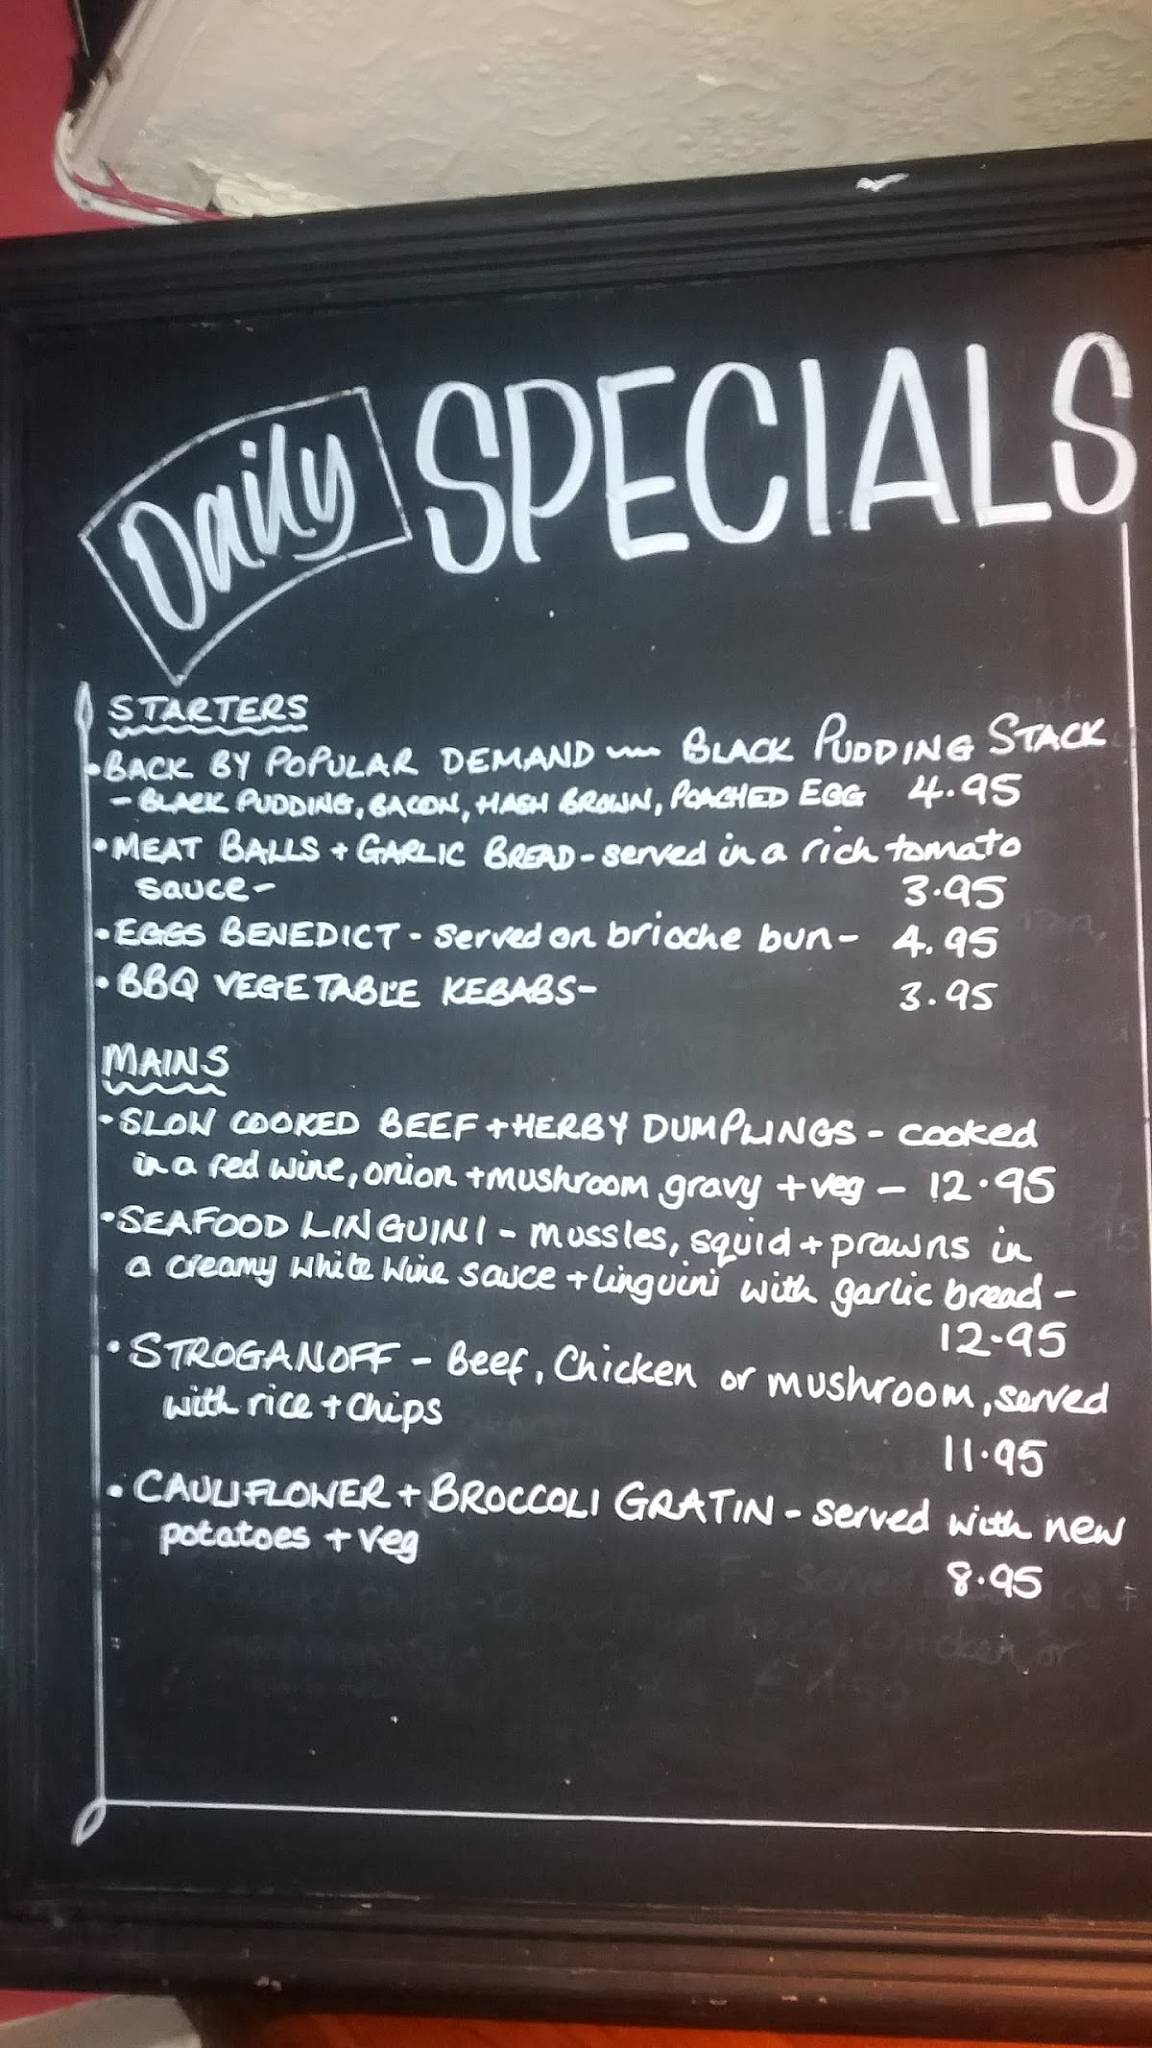 Daily SPECIALS
STARTERS
• BACK BY POPULAR DEMAND ~ BLACK PUDDING STACK
- BLACK PUDDING, BACON, HASH BROWN, POACHED EGG 4.95
• MEAT BALLS + GARLIC BREAD - served in a rich tomato
sauce - 3.95
• EGGS BENEDICT - served on brioche bun - 4.95
• BBQ VEGETABLE KEBABS - 3.95
MAINS
• SLOW COOKED BEEF + HERBY DUMPLINGS - cooked
in a red wine, onion + mushroom gravy + veg - 12.95
• SEAFOOD LINGUINI - mussles, squid + prawns in
a creamy white wine sauce + linguini with garlic bread -
12.95
• STROGANOFF - Beef, Chicken or mushroom, served
with rice + chips
11.95
• CAULIFLOWER + BROCCOLI GRATIN - served with new
potatoes + veg
8.95